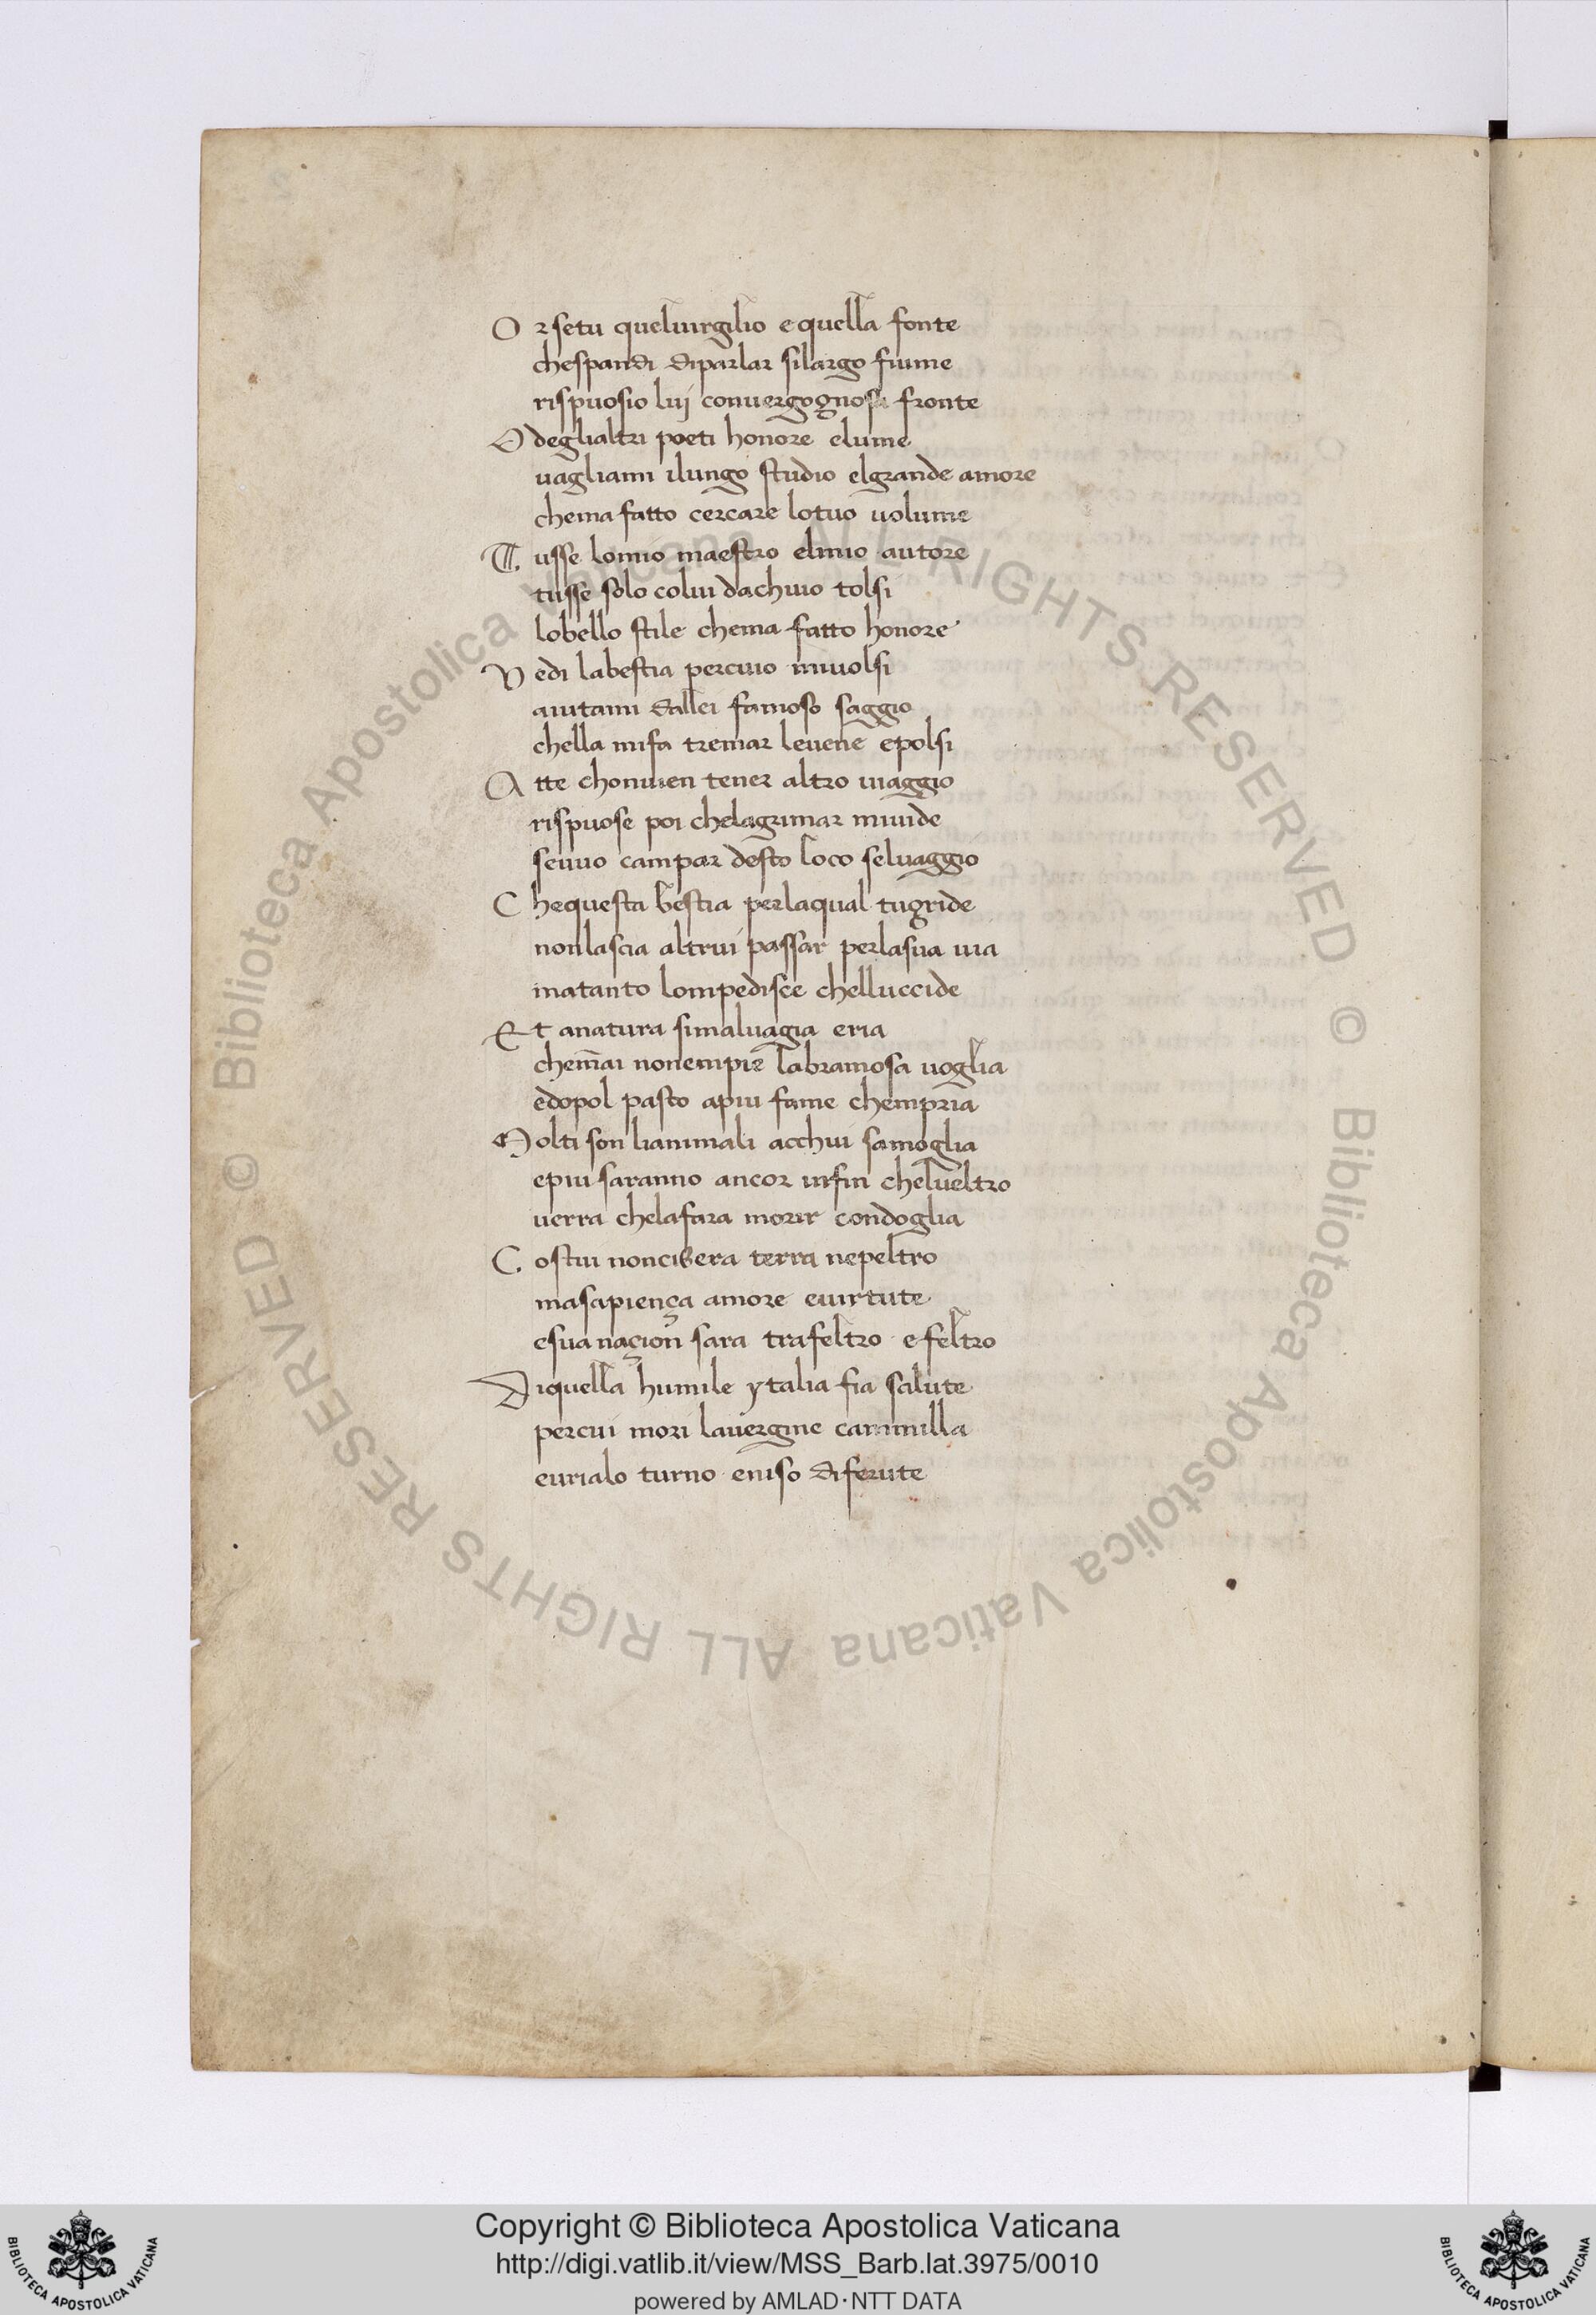 O rsetu queluirgilio e quella fonte
chespandi diparlar silargo fiume
rispuosio luj conuergognosa fronte
O deglialtri poeti honore elume
uagliami ilungo studio elgrande amore
chema fatto cercare lotuo uolume
T usse lomio maestro elmio autore
tusse solo colui dachuio tolsi
lobello stile chema fatto honore
V edi labestia percuio miuolsi
aiutami dallei famoso saggio
chella mifa tremar leuene epolsi
A tte chonuien tener altro uiaggio
rispuose poi chelagrimar miuide
seuuo campar desto loco seluaggio
C hequesta bestia perlaqual tugride
nonlascia altrui passar perlasua uia
matanto lompedisce chelluccide
E t anatura simaluagia eria
chem̄ai nonempie labramosa uoglia
edopol pasto apiu fame chempria
M olti son lianimali acchui samoglia
epiu saranno ancor infin chelueltro
uerra chelafara morir condoglia
C ostui noncibera terra nepeltro
masapiença amore euirtute
esua naçion sara trafeltro e feltro
D iquella humile ytalia fia salute
percui mori lauergine cammilla
eurialo turno eniso diferute
Biblioteca Apostolica Vaticana ALL RIGHTS RESERVED © Biblioteca Apostolica Vaticana ALL RIGHTS RESERVED ©
Copyright © Biblioteca Apostolica Vaticana
http://digi.vatlib.it/view/MSS_Barb.lat.3975/0010
powered by AMLAD·NTT DATA
BIBLIOTECA APOSTOLICA VATICANA
BIBLIOTECA APOSTOLICA VATICANA